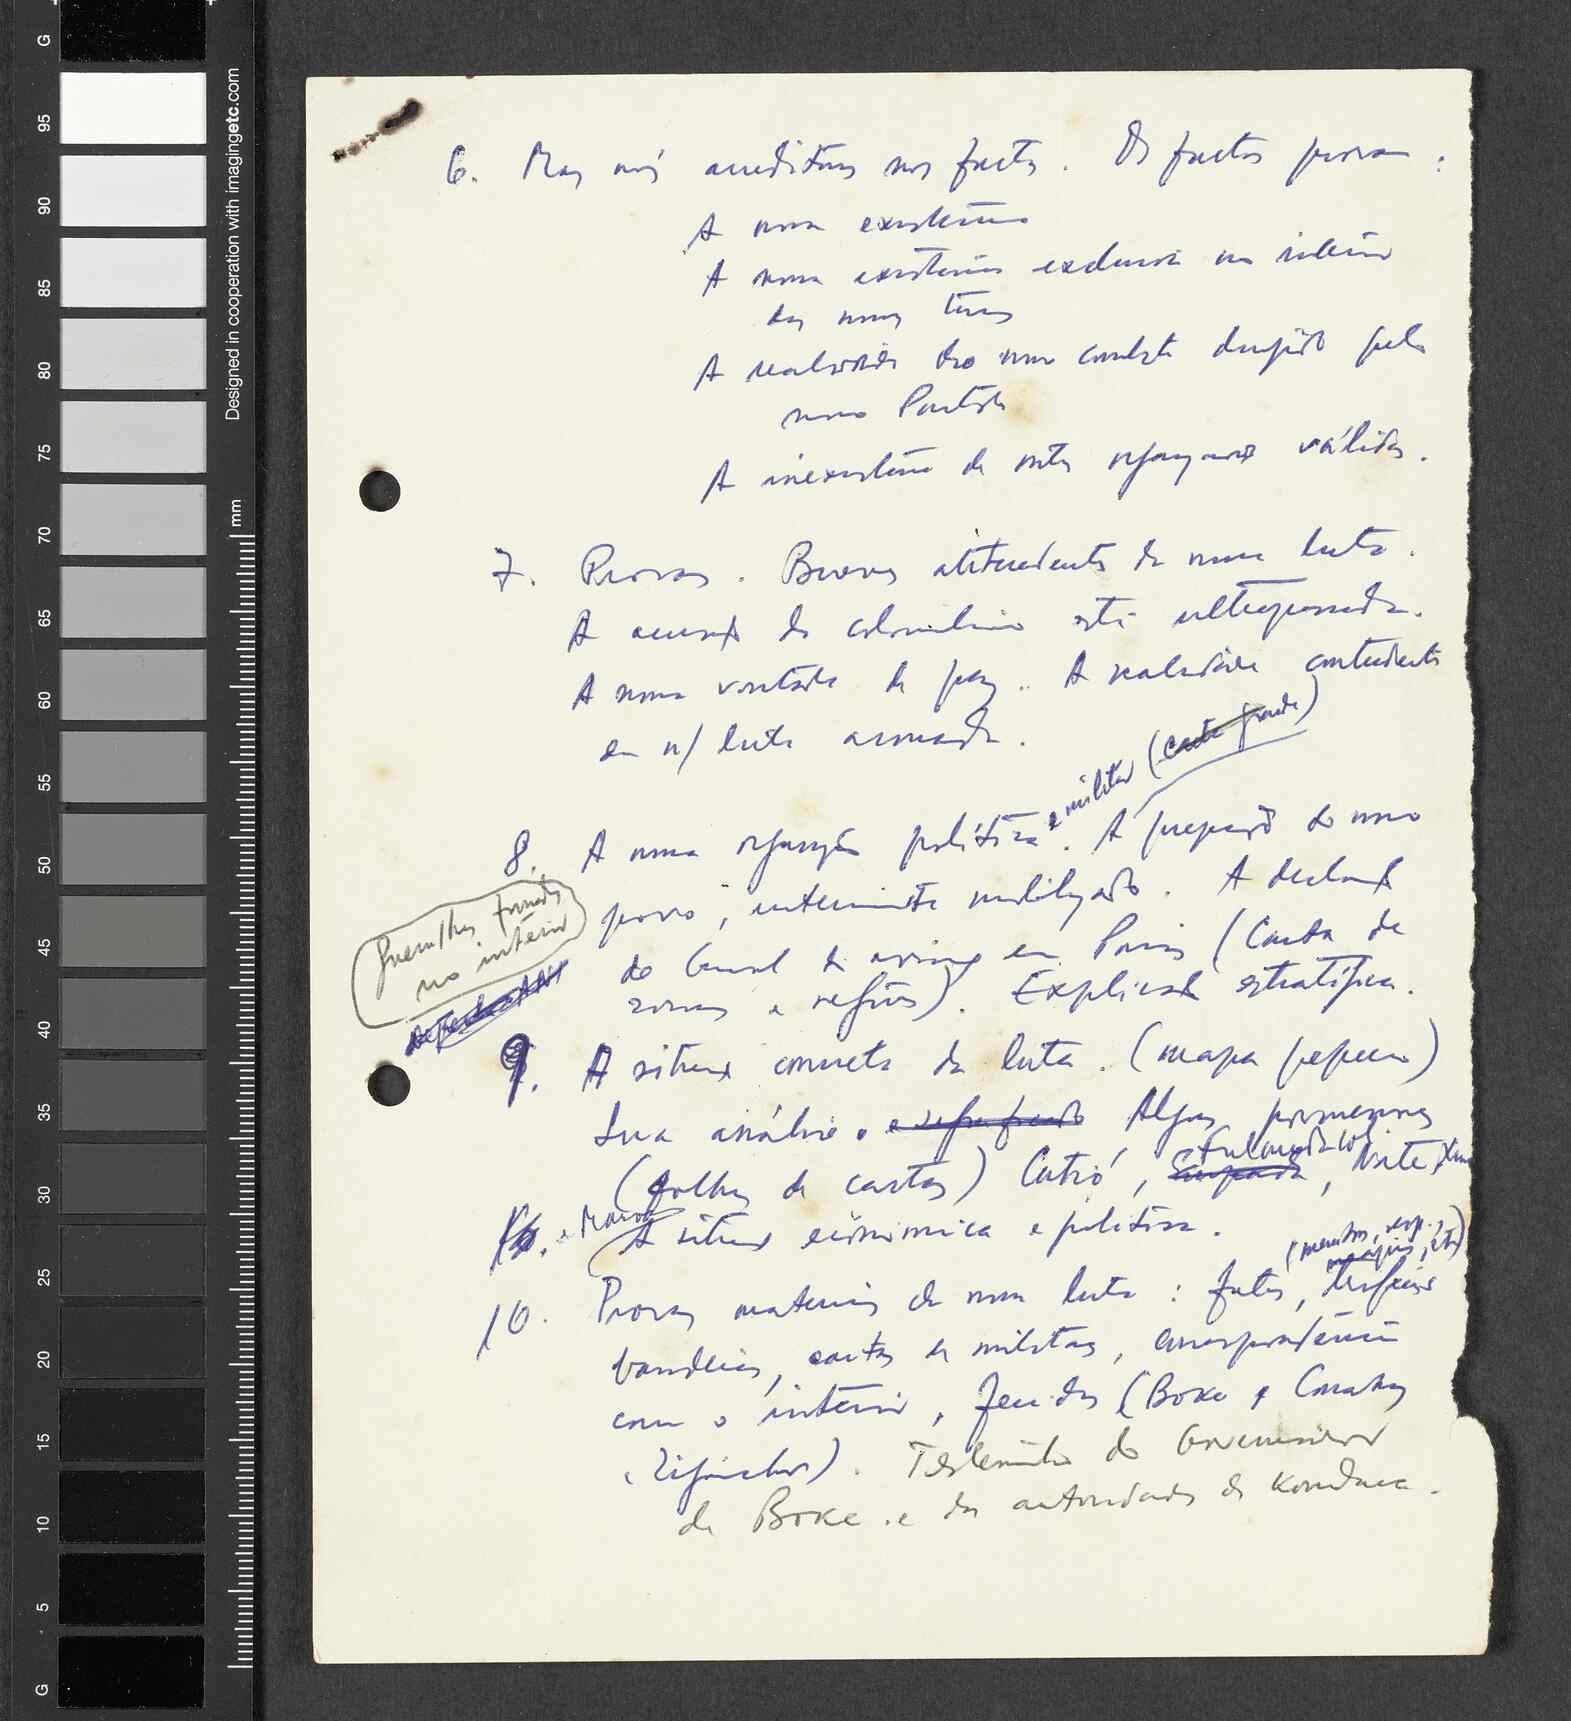 6. Mas nós acreditamos nos factos. Os factos provam:
A nossa existência
A nossa existência exclusiva no interior
das nossas terras
A realidade do nosso combate dirigido pelo
nosso Partido
A inexistência de outras organizações válidas.
7. Provas. Breves antecedentes da nossa luta.
A acusação do colonialismo está ultrapassada.
A nossa vontade de paz. A realidade
da n/ luta armada.
e militar (carta grande)
8. A nossa organização política. A preparação do nosso
povo, inteiramente mobilizado. A declaração
do em Paris (Carta de
zonas e regiões). Explicação estratégica.
Guerrilhas formadas
no interior
9. A situação concreta da luta. (mapa pequeno)
Sua análise. Algs pormenores
(folhas de cartas) Catió, Fulacunda, Norte,
A situação económica e política.
10. Provas materiais da nossa luta: fotos,
bandeiras, cartas de militares, correspondência
com o interior, feridos (Boke e Conakry
e Ziguinchor). Testemunho do Governador
de Boke e das autoridades de Koundara.
Designed in cooperation with imagingetc.com
mm
G
95
90
85
80
75
70
65
60
55
50
45
40
35
30
25
20
15
10
5
G